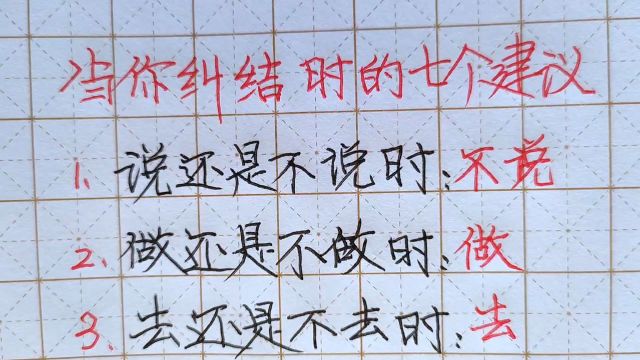 当你纠结时的七个建议
1. 说还是不说时:不说
2. 做还是不做时:做
3. 去还是不去时:去